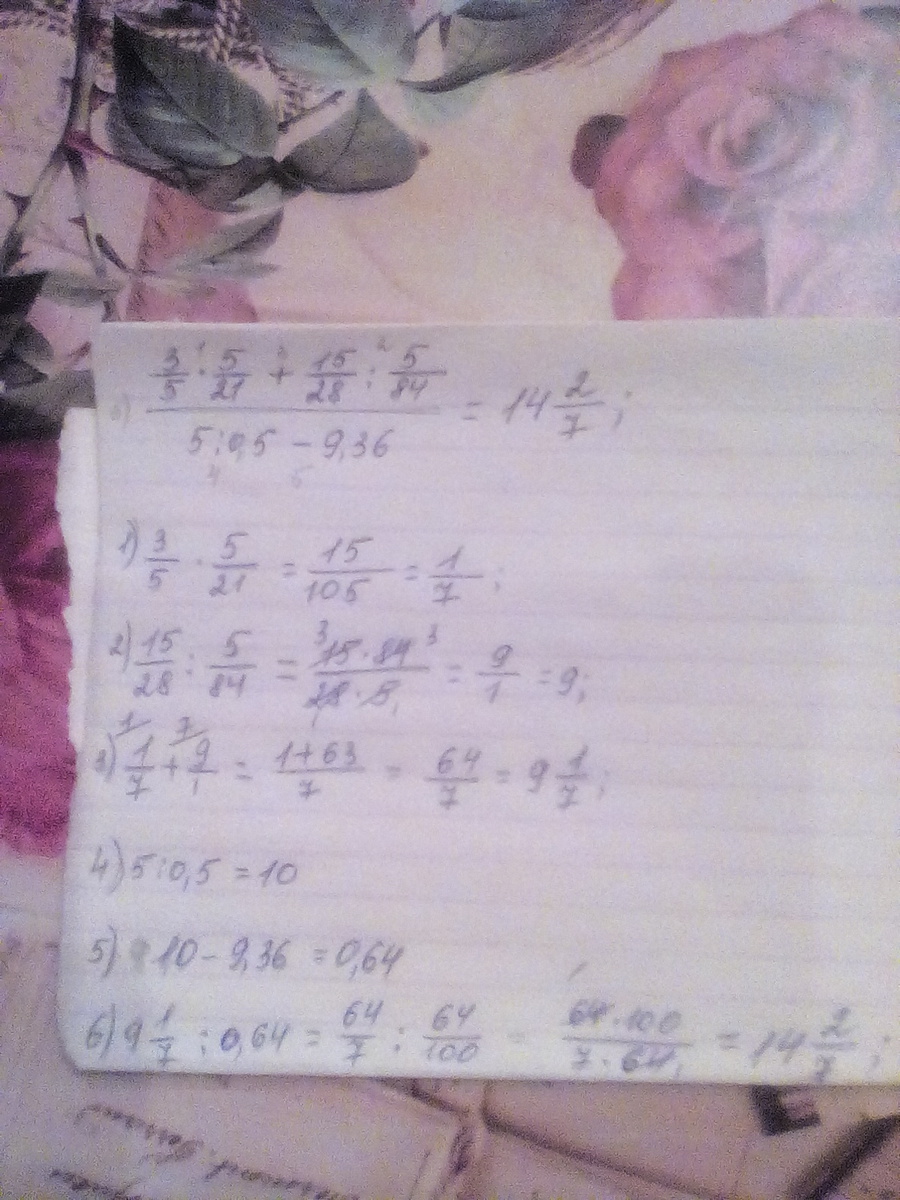 6) (3/5 · 5/21 + 15/28 : 5/84) / (5:0,5 − 9,36) = 14 2/7;
1) 3/5 · 5/21 = 15/105 = 1/7;
2) 15/28 : 5/84 = 15·84/28·5 = 9/1 = 9;
3) 1/7 + 9/1 = 1+63/7 = 64/7 = 9 1/7;
4) 5:0,5 = 10
5) 10 − 9,36 = 0,64
6) 9 1/7 : 0,64 = 64/7 : 64/100 = 64·100/7·64 = 14 2/7;